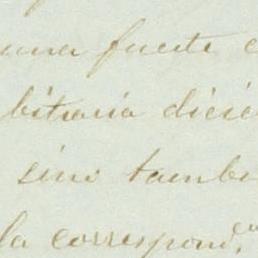 una fuerte
bitraria
sino tambi
la correspond.a